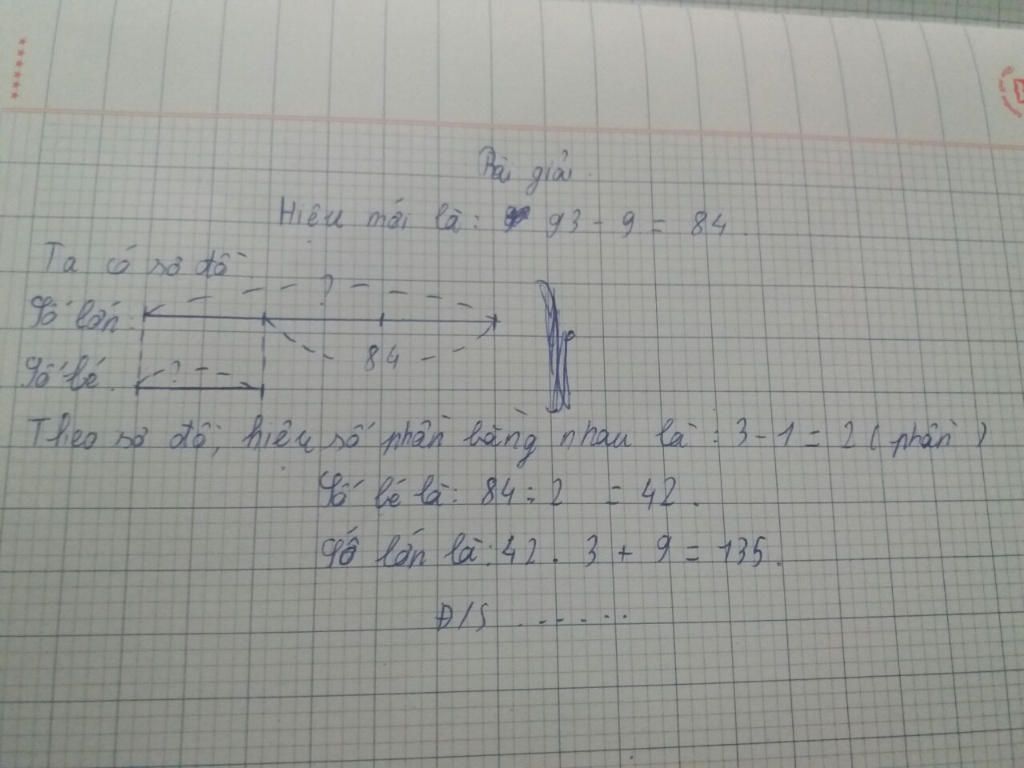 Bài giải
Hiệu mới là: 93 - 9 = 84.
Ta có sơ đồ
?
Số lớn:
84
Số bé.
?
Theo sơ đồ, hiệu số phần bằng nhau là: 3 - 1 = 2 (phần)
Số bé là: 84 : 2 = 42.
Số lớn là: 42 . 3 + 9 = 135.
Đ/S ......